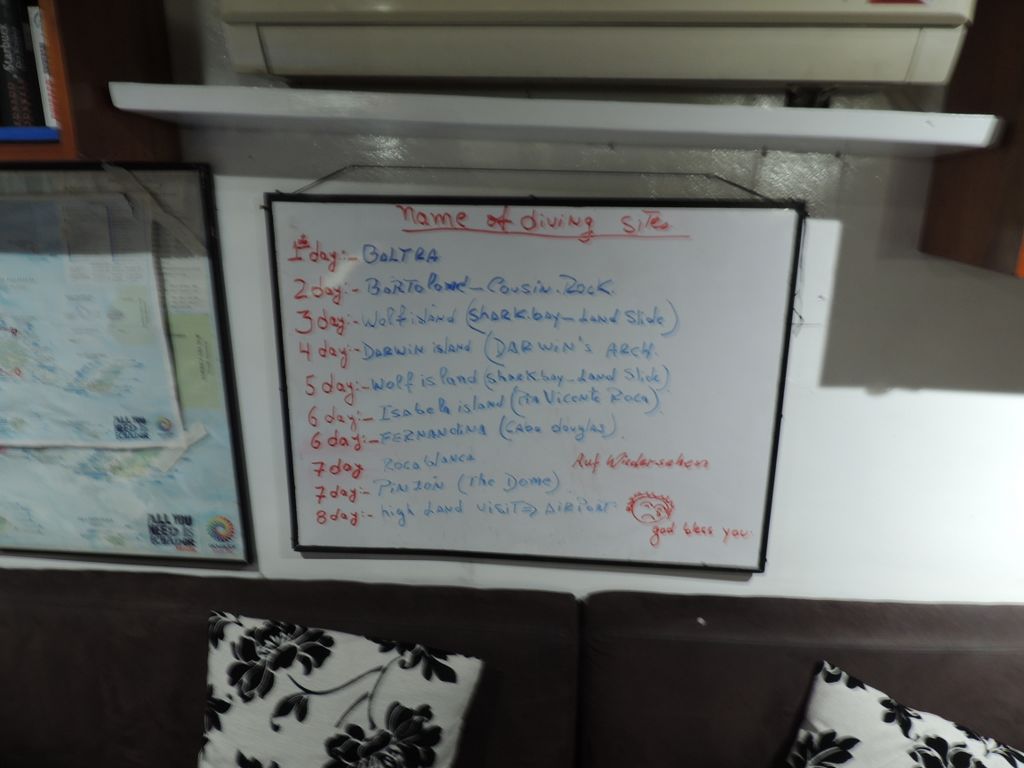 name of diving sites
1st day:- BALTRA
2 day:- BARTolomé - Cousin.Rock.
3 day:- Wolf island (Shark.bay - Land Slide)
4 day:- DARWIN island (DARWIN'S ARCH.
5 day:- Wolf island (Shark bay - Land Slide)
6 day:- Isabela island (Pta Vicente Roca).
6 day:- FERNANDINA (CABO douglas).
7 day Roca blanca
Auf Wiedersehen
7 day:- PINZÓN (The Dome)
8 day:- high Land visit → AIRPORT.
god bless you.
ALL YOU NEED IS ECUADOR
ALL YOU NEED IS ECUADOR